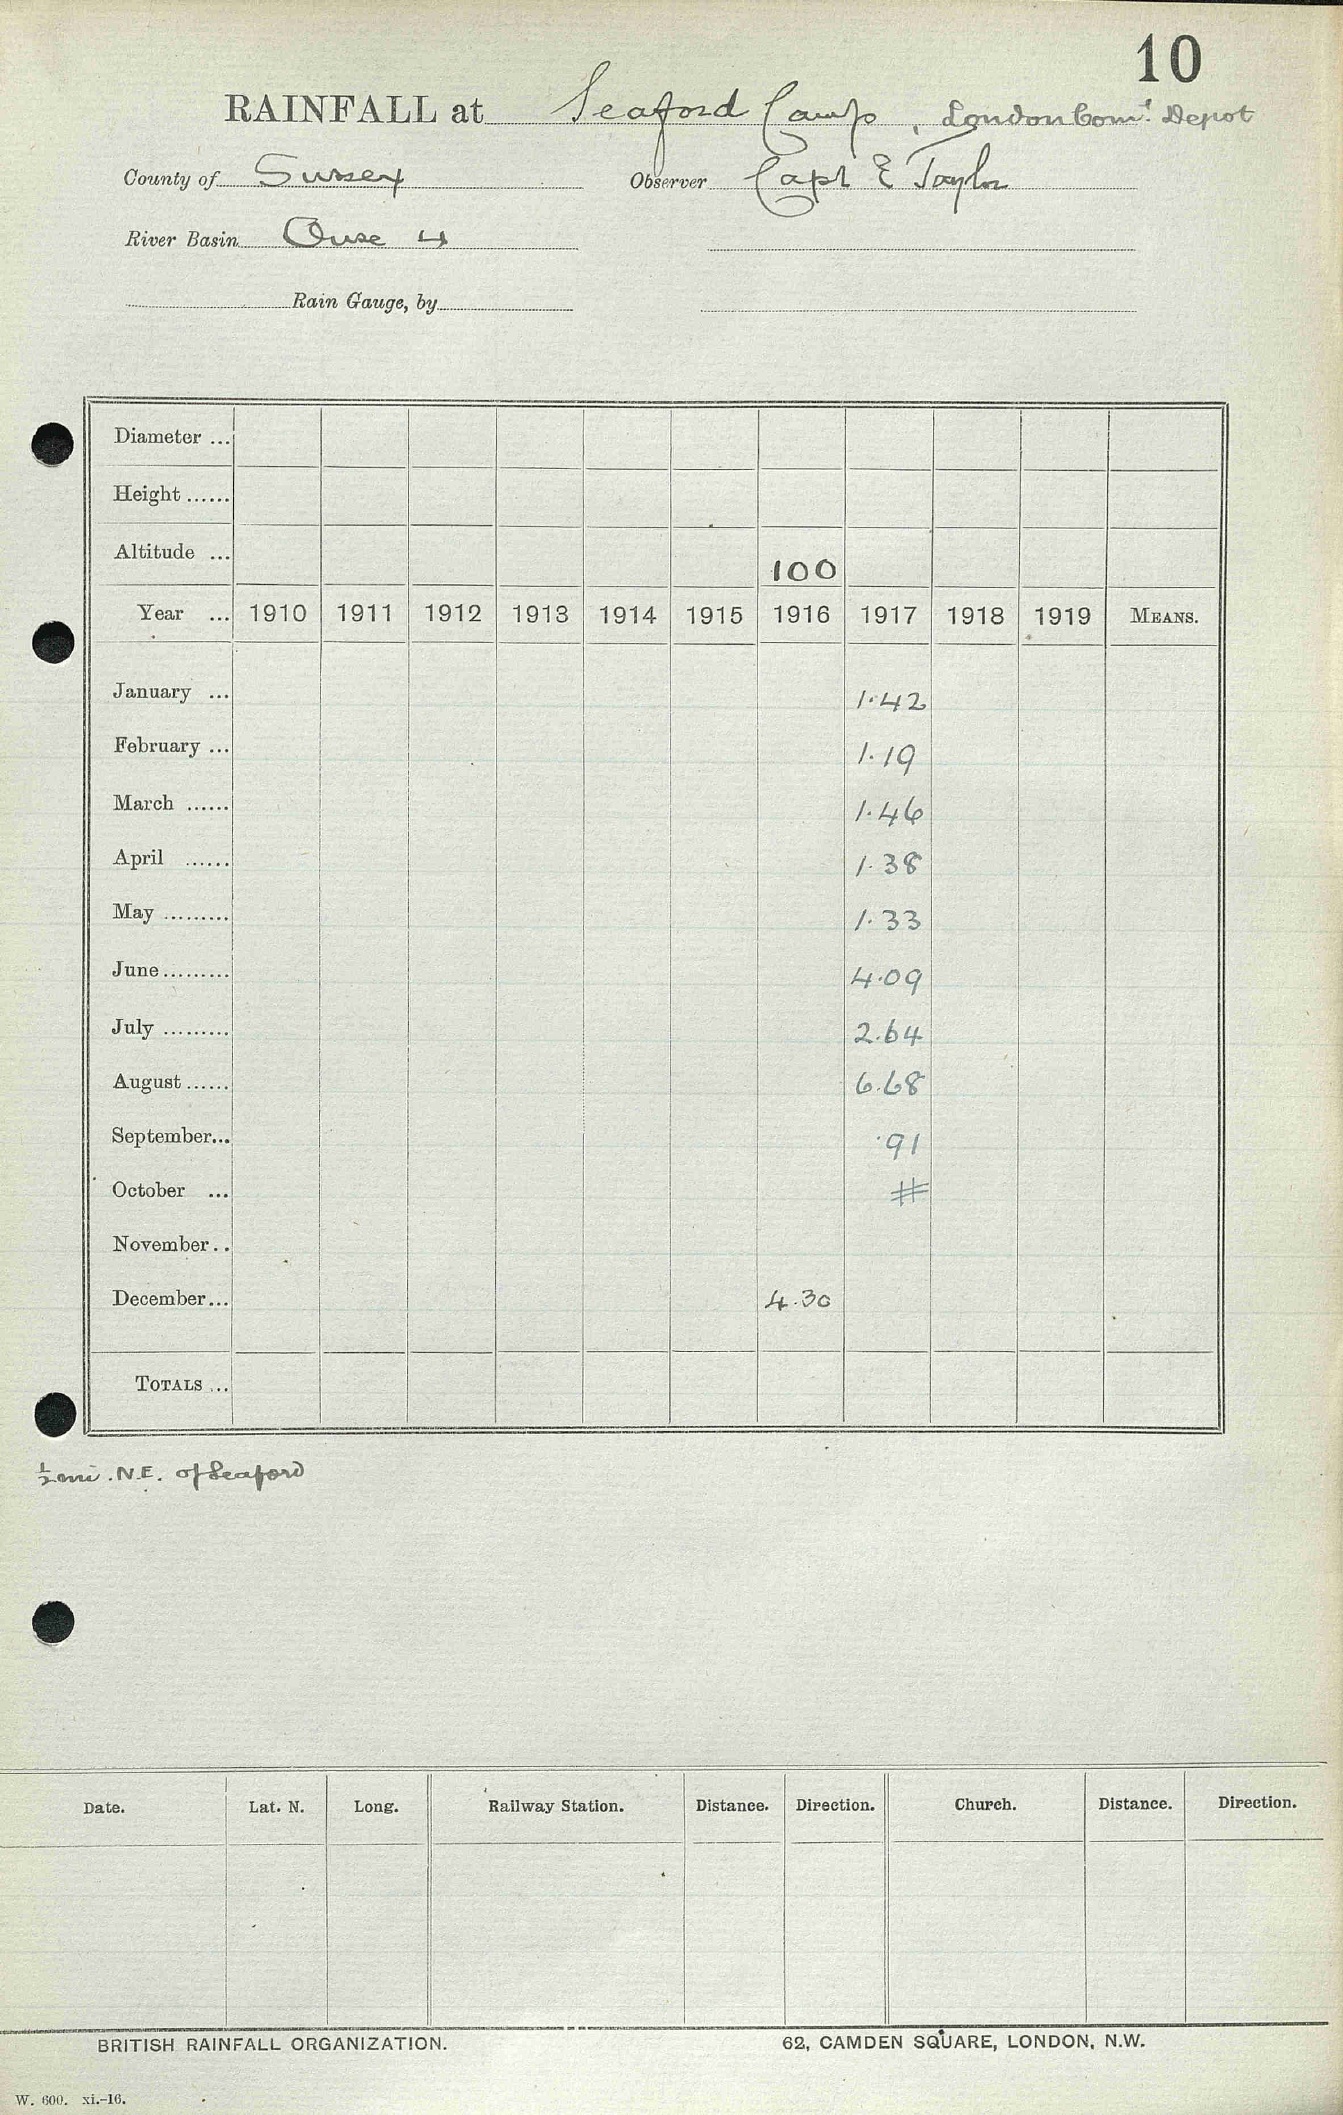 10
RAINFALL at Seaford Camp, London Com.d Depot
County of Sussex Observer Capt E Taylor
River Basin Ouse 4
Rain Gauge, by
Diameter ...
Height ......
Altitude ... 100
Year ... 1910 1911 1912 1913 1914 1915 1916 1917 1918 1919 MEANS.
January ... 1.42
February ... 1.19
March ...... 1.46
April ...... 1.38
May ......... 1.33
June ......... 4.09
July ......... 2.64
August ...... 6.68
September... .91
October ... #
November..
December... 4.30
TOTALS ...
½ mi. N.E. of Seaford
Date. Lat. N. Long. Railway Station. Distance. Direction. Church. Distance. Direction.
BRITISH RAINFALL ORGANIZATION. 62, CAMDEN SQUARE, LONDON, N.W.
W. 600. xi.-16.